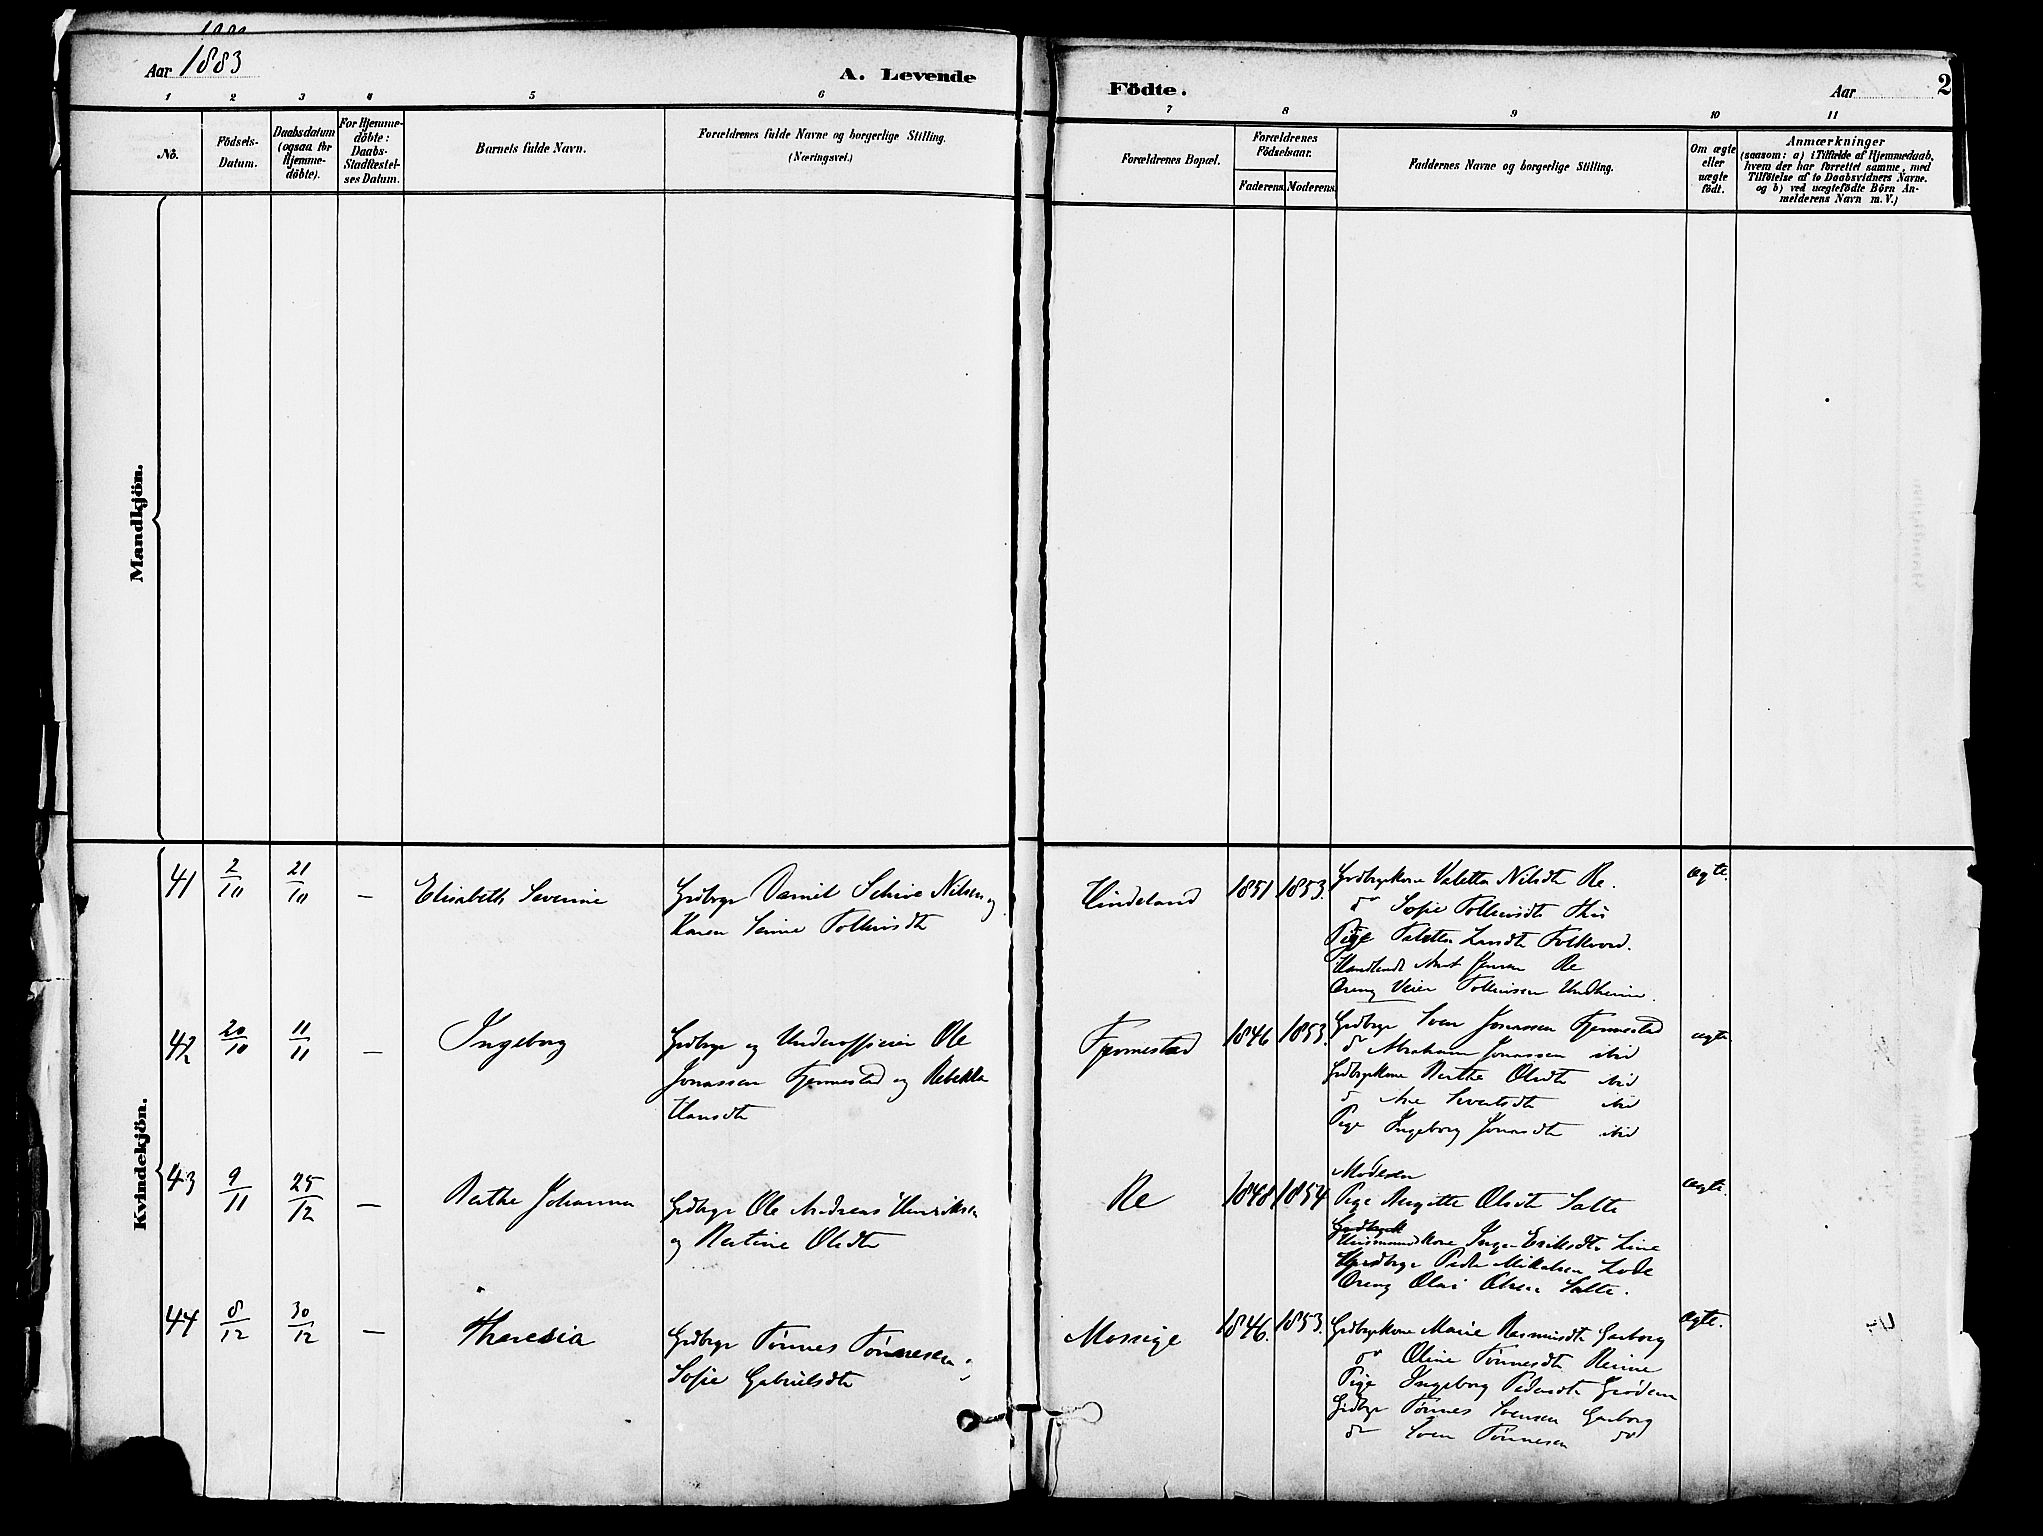 Aar 1883
A. Levende
Födte.
Aar
2
1 2 3 4 5 6 7 8 9 10 11
No.
Födsels-
Datum.
Daabsdatum
(ogsaa for
Hjemme-
döbte).
For Hjemme-
döbte:
Daabs-
Stadfæstel-
ses Datum.
Barnets fulde Navn.
Forældrenes fulde Navne og borgerlige Stilling.
(Næringsvei.)
Forældrenes Bopæl.
Forældrenes
Födselsaar.
Faderens. Moderens.
Faddernes Navne og borgerlige Stilling.
Om ægte
eller
uægte
födt.
Anmærkninger
(saasom: a) i Tilfælde af Hjemmedaab,
hvem der har forrettet samme, med
Tilföielse af to Daabsvidners Navne.
og b) ved uægtefödte Börn An-
melderens Navn m.V.)
Mandkjön.
Kvindekjön.
41 2/10 21/10 — Elisabeth Severine
Grdbrgr Daniel Schive Nilsen og
Karen Serine Tollevsdtr
Hindeland 1851 1853.
Grdbrgkone Valetta Nilsdtr Re.
do Sofie Tollevsdtr
Pige Larsdtr Folkvord.
Handlende Jensen Re
Dreng Tollevsen Undheim.
ægte.
42 20/10 11/11 — Ingeborg
Grdbrgr og Underofficier Ole
Jonassen Fjermestad og Rebekka
Hansdtr
Fjermestad 1846 1853.
Grdbrgr Sven Jonassen Fjermestad
do Abraham Jonassen ibid
Grdbrgkone Berthe Olsdtr ibid
do Ane Sivertsdtr ibid
Pige Ingeborg Jonasdtr ibid
ægte.
43 9/11 25/12 — Berthe Johanna
Grdbrgr Ole Andreas Henriksen
og Bertine Olsdtr
Re 1848 1854
Moderen
Pige Birgitte Olsdtr Salte
Husmandskone Inger Eriksdtr Line
Grdbrgr Peder Mikalsen Lode
Dreng Olai Olsen Salte.
ægte.
44 8/12 30/12 — Theresia
Grdbrgr Tönnes Tönnesen og
Sofie Gabrielsdtr
Mossige 1846. 1853.
Grdbrgkone Marie Rasmusdtr Garborg
do Oline Tönnesdtr Rinne
Pige Ingeborg Pedersdtr Grödem
Grdbrgr Tönnes Svensen Garborg
do Sven Tönnesen do
ægte.